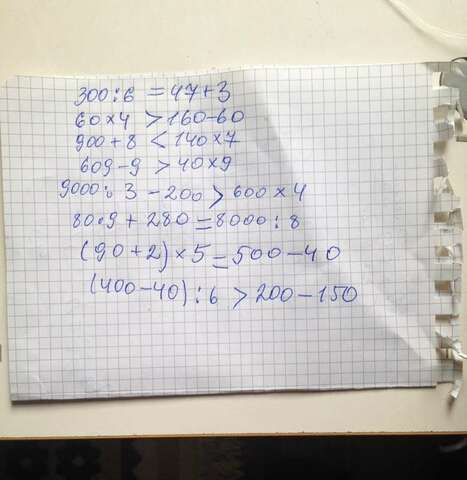 300:6 = 47+3
60×4 > 160-60
900+8 < 140×7
609-9 > 40×9
9000:3 - 200 > 600×4
80·9 + 280 = 8000:8
(90+2)×5 = 500-40
(400-40):6 > 200-150